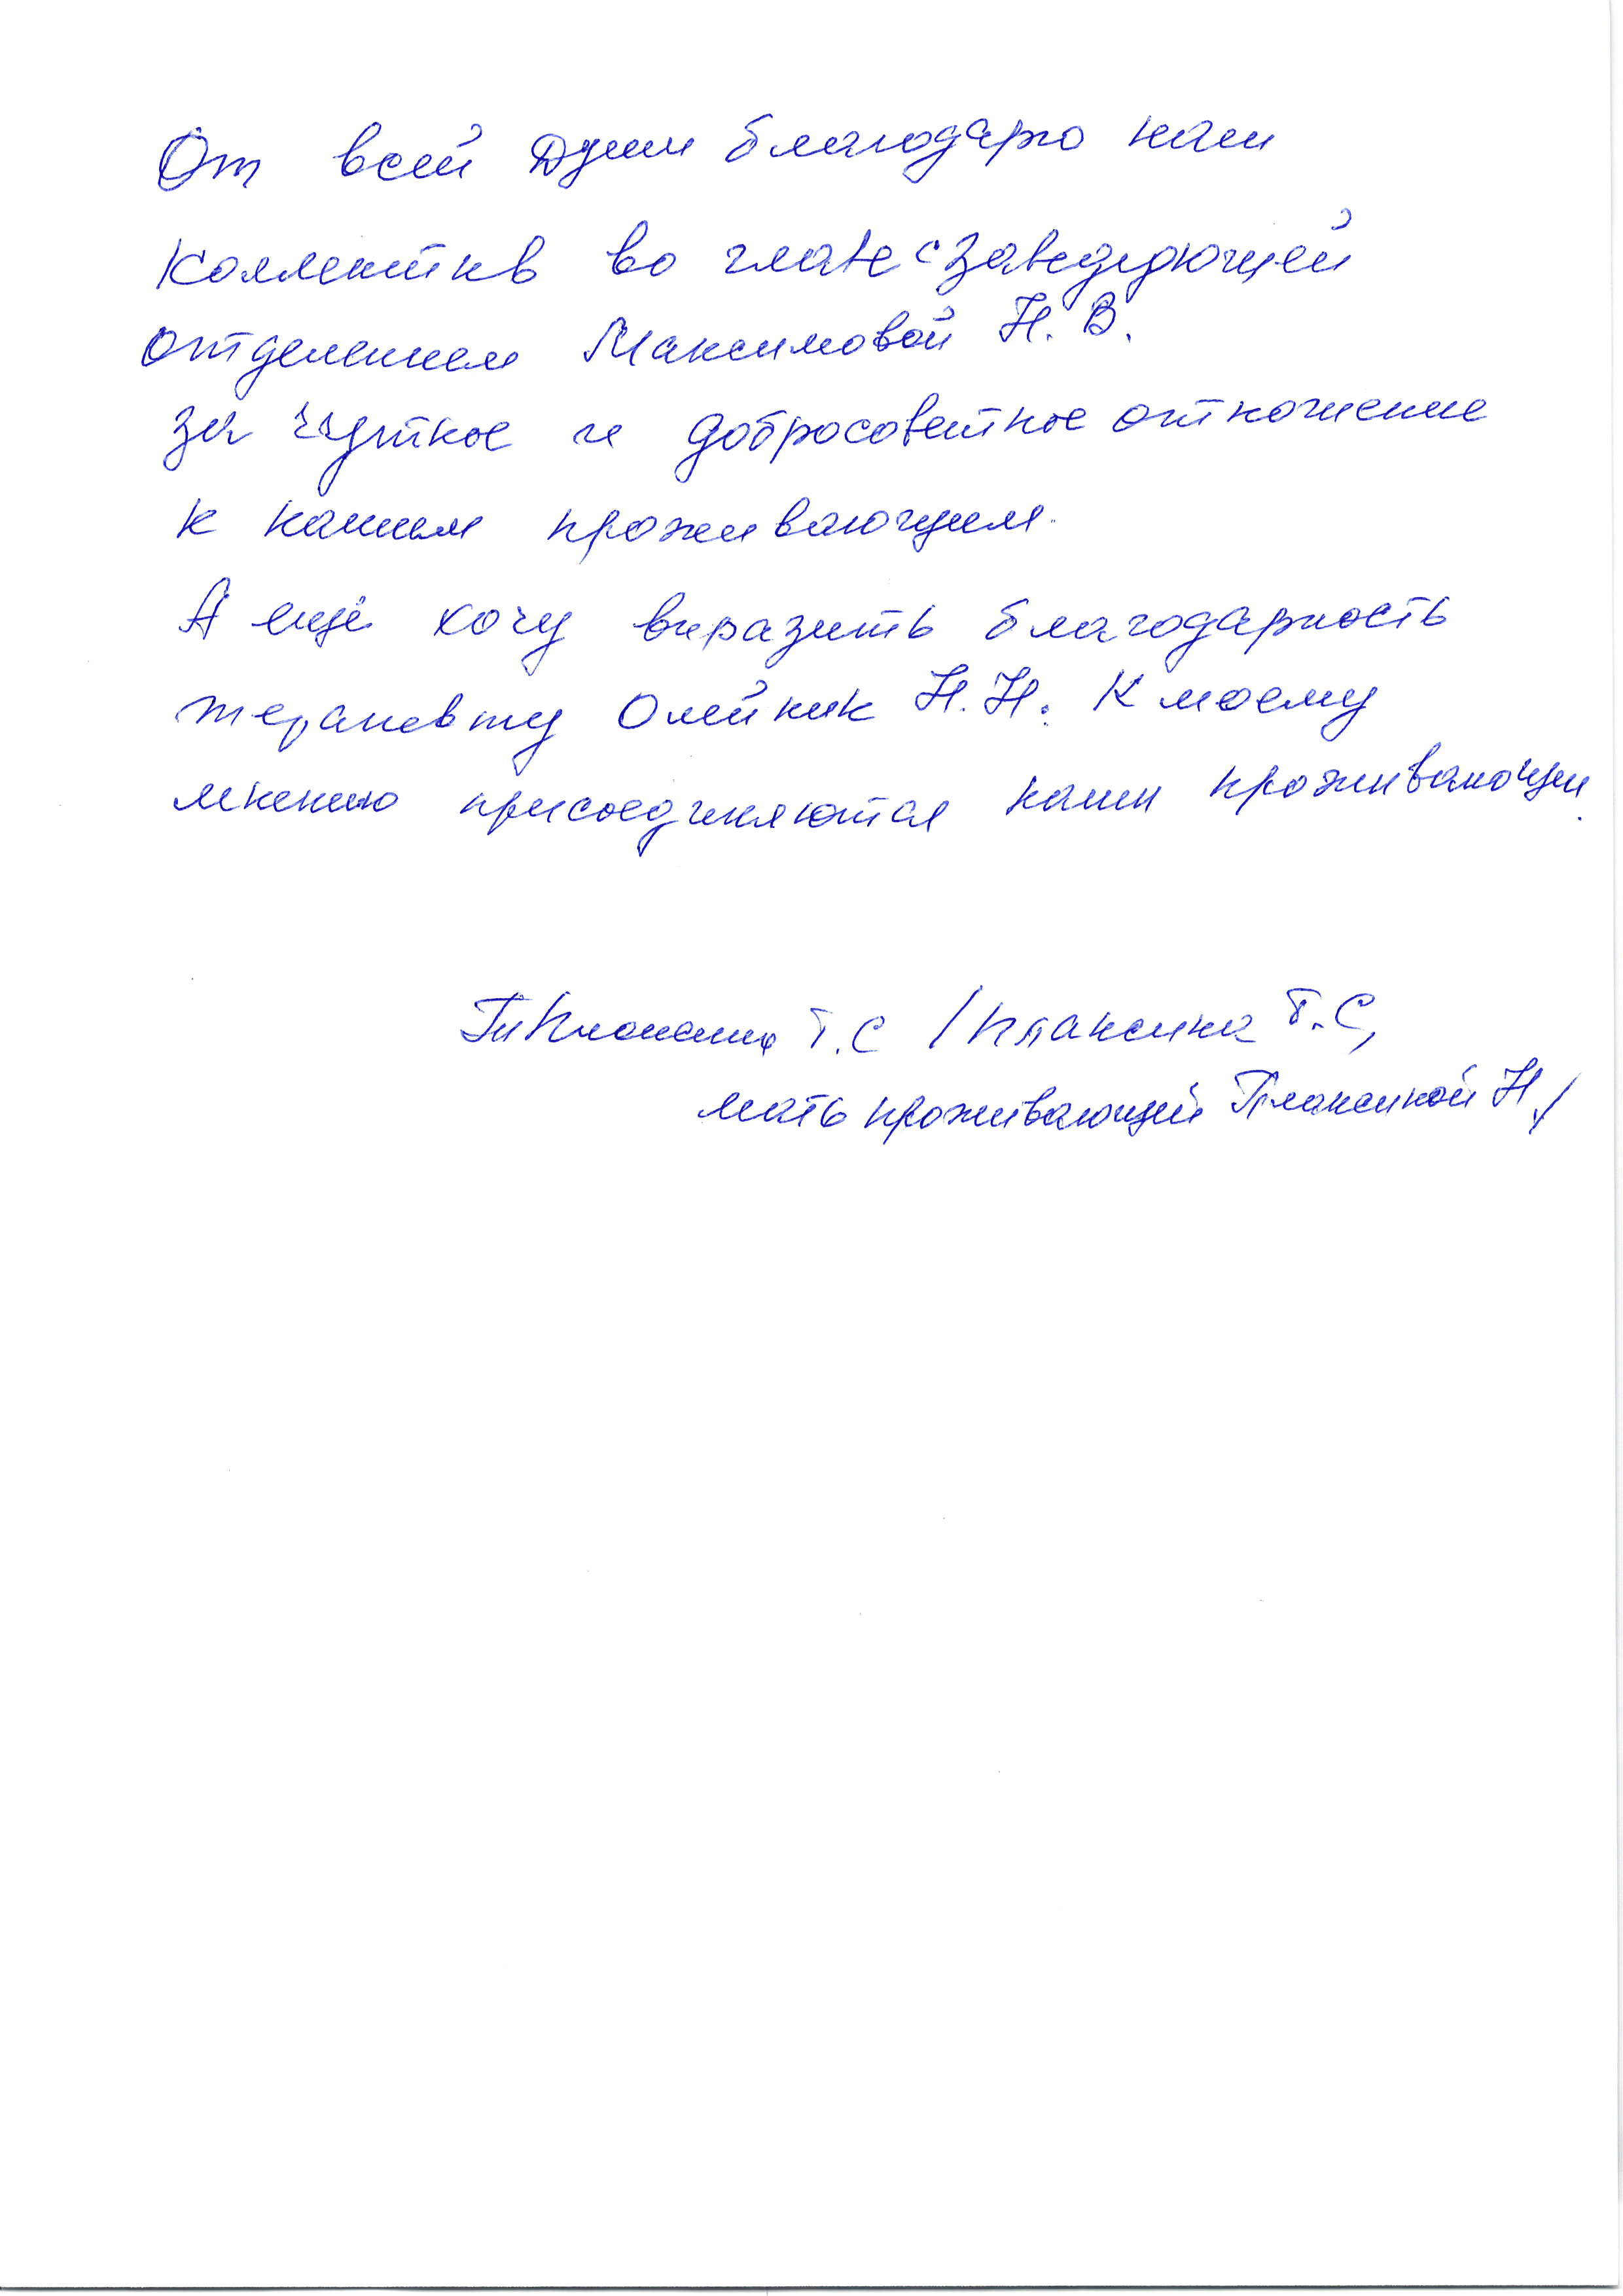 От всей души благодарю наш
коллектив во главе с заведующей
отделением Максимовой Н. В.
за чуткое и добросоветное отношение
к нашим проживающим.
А ещё хочу выразить благодарность
терапевту Олейник Н.Н. К моему
мнению присоединяются наши проживающи.
Т.С /Плаксина Т.С,
мать проживающей Плаксиной Н./